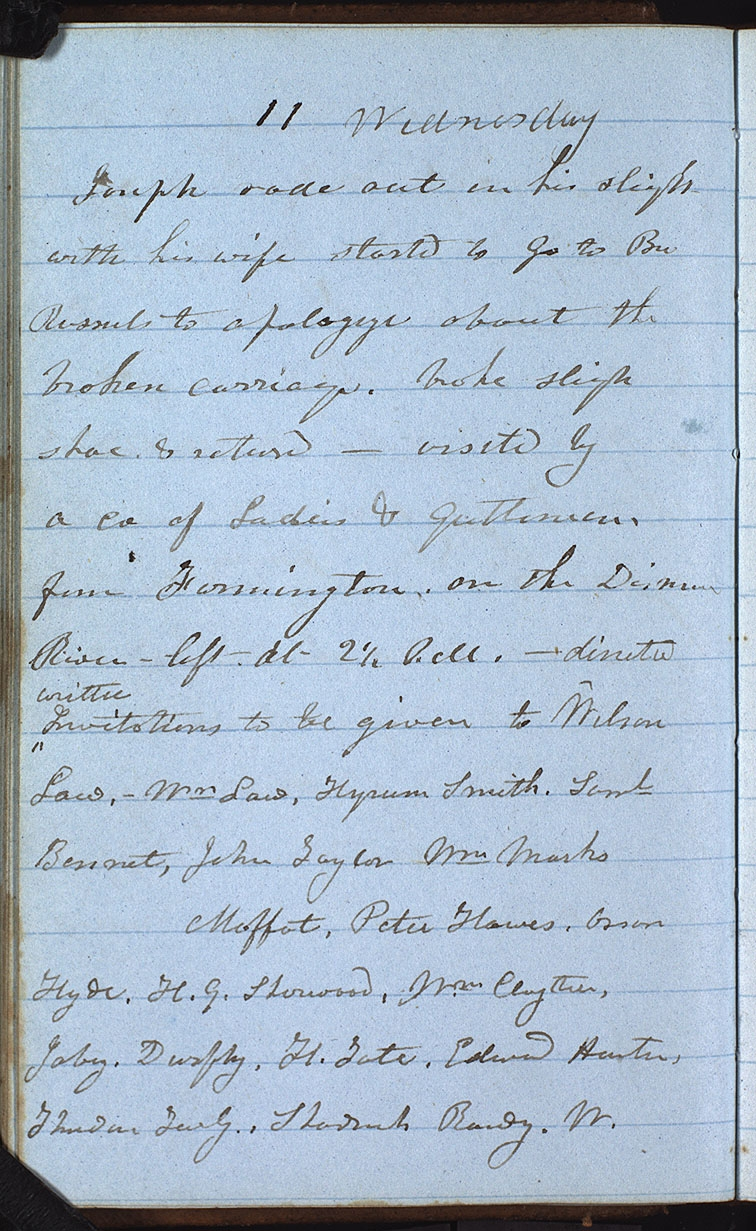 11 Wednesday
Joseph rode out in his sleigh
with his wife started to go to Bro
Russels to apologize about the
broken carriage. broke sleigh
shoe. & returd — visited by
a co of Ladies & gentlemen.
from Farmington. on the
River - left - at 2½ P.M. —
written
Invitations to be given to Wilson
Law, - Wm Law, Hyrum Smith. Saml
Bennet, John Taylor Wm Marks
Moffat, Peter Hawes. Orson
Hyde. H. G. Sherwood, Wm Clayton,
Jabez. Durphy. H. Tate. Edward Hunter,
Theodore Turly., Shadrach Roundy. W.